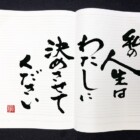 私の
人生は
わたしに
決めさせて
ください